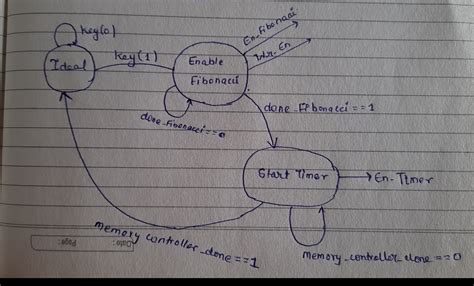 Key(0)
Ideal
Key(1)
Enable
Fibonacci
En_Fibonacci
Wr_En
done_Fibonacci==0
done_Fibonacci==1
Start Timer
En_Timer
memory controller_done==1
memory_controller_done==0
Date:
Page: